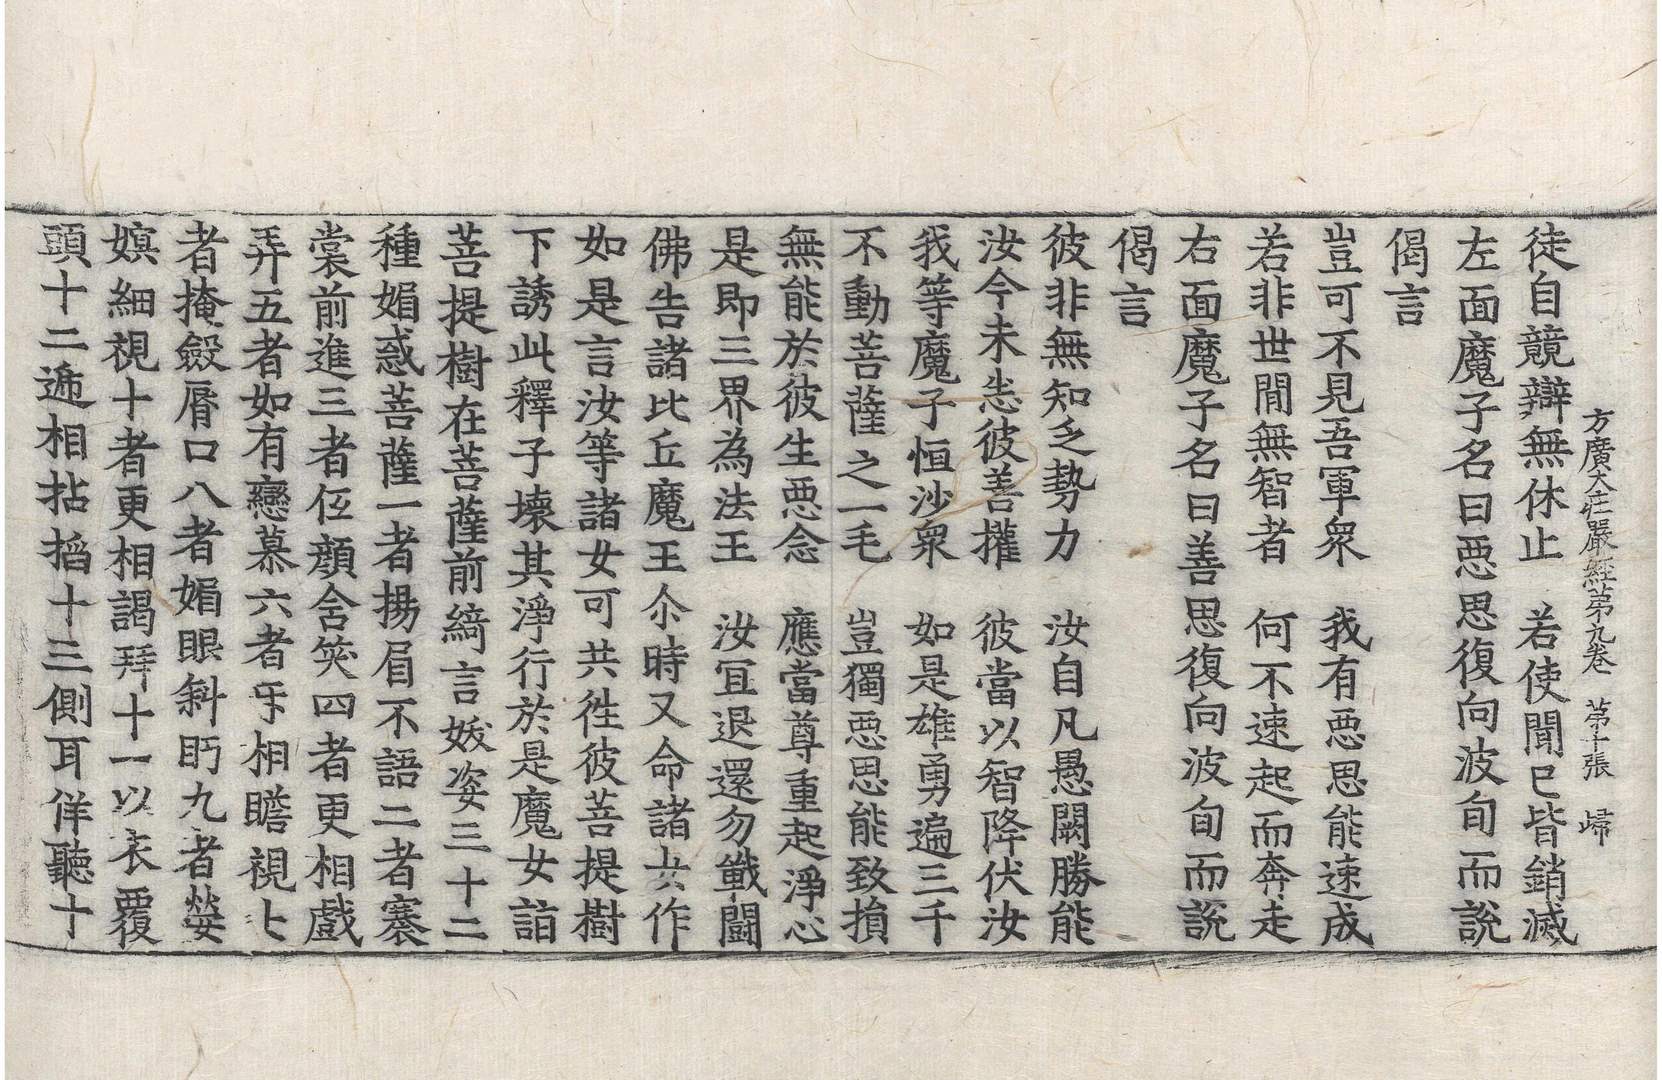 方廣大莊嚴經第九卷　第十張　歸
徒自競辯無休止　若使聞已皆銷滅
左面魔子名曰惡思復向波旬而說
偈言
豈可不見吾軍衆　我有惡思能速成
若非世閒無智者　何不速起而奔走
右面魔子名曰善思復向波旬而說
偈言
彼非無知乏勢力　汝自凡愚闕勝能
汝今未恙彼善權　彼當以智降伏汝
我等魔子恒沙衆　如是雄勇遍三千
不動菩薩之一毛　豈獨惡思能致損
無能於彼生惡念　應當尊重起淨心
是即三界為法王　汝冝退還勿戰闘
佛告諸比丘魔王尒時又命諸女作
如是言汝等諸女可共徃彼菩提樹
下誘此釋子壞其淨行於是魔女詣
菩提樹在菩薩前綺言妖姿三十二
種媚惑菩薩一者揚眉不語二者褰
裳前進三者伭顔含笑四者更相戲
弄五者如有戀慕六者乐相瞻視七
者掩斂脣口八者媚眼斜眄九者嫈
嫇細視十者更相謁拜十一以衣覆
頭十二遞相拈掐十三側耳佯聽十